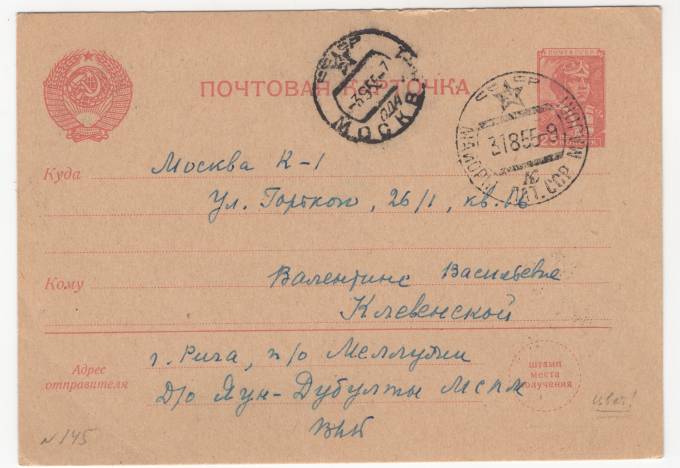 ПОЧТОВАЯ КАРТОЧКА
СССР
3 9 55-7
МОСКВА
СССР
31 8 55-9
МАЙОРИ ЛАТ. ССР
ПОЧТА СССР
25
Куда
Москва К-1
Ул. Горького, 26/1, кв. 16
Кому
Валентине Васильевне
Клевенской
Адрес
отправителя
г. Рига, п/о Меллужи
Д/о Яун-Дубулты МСПМ
штамп
места
получения
цвет!
N 145